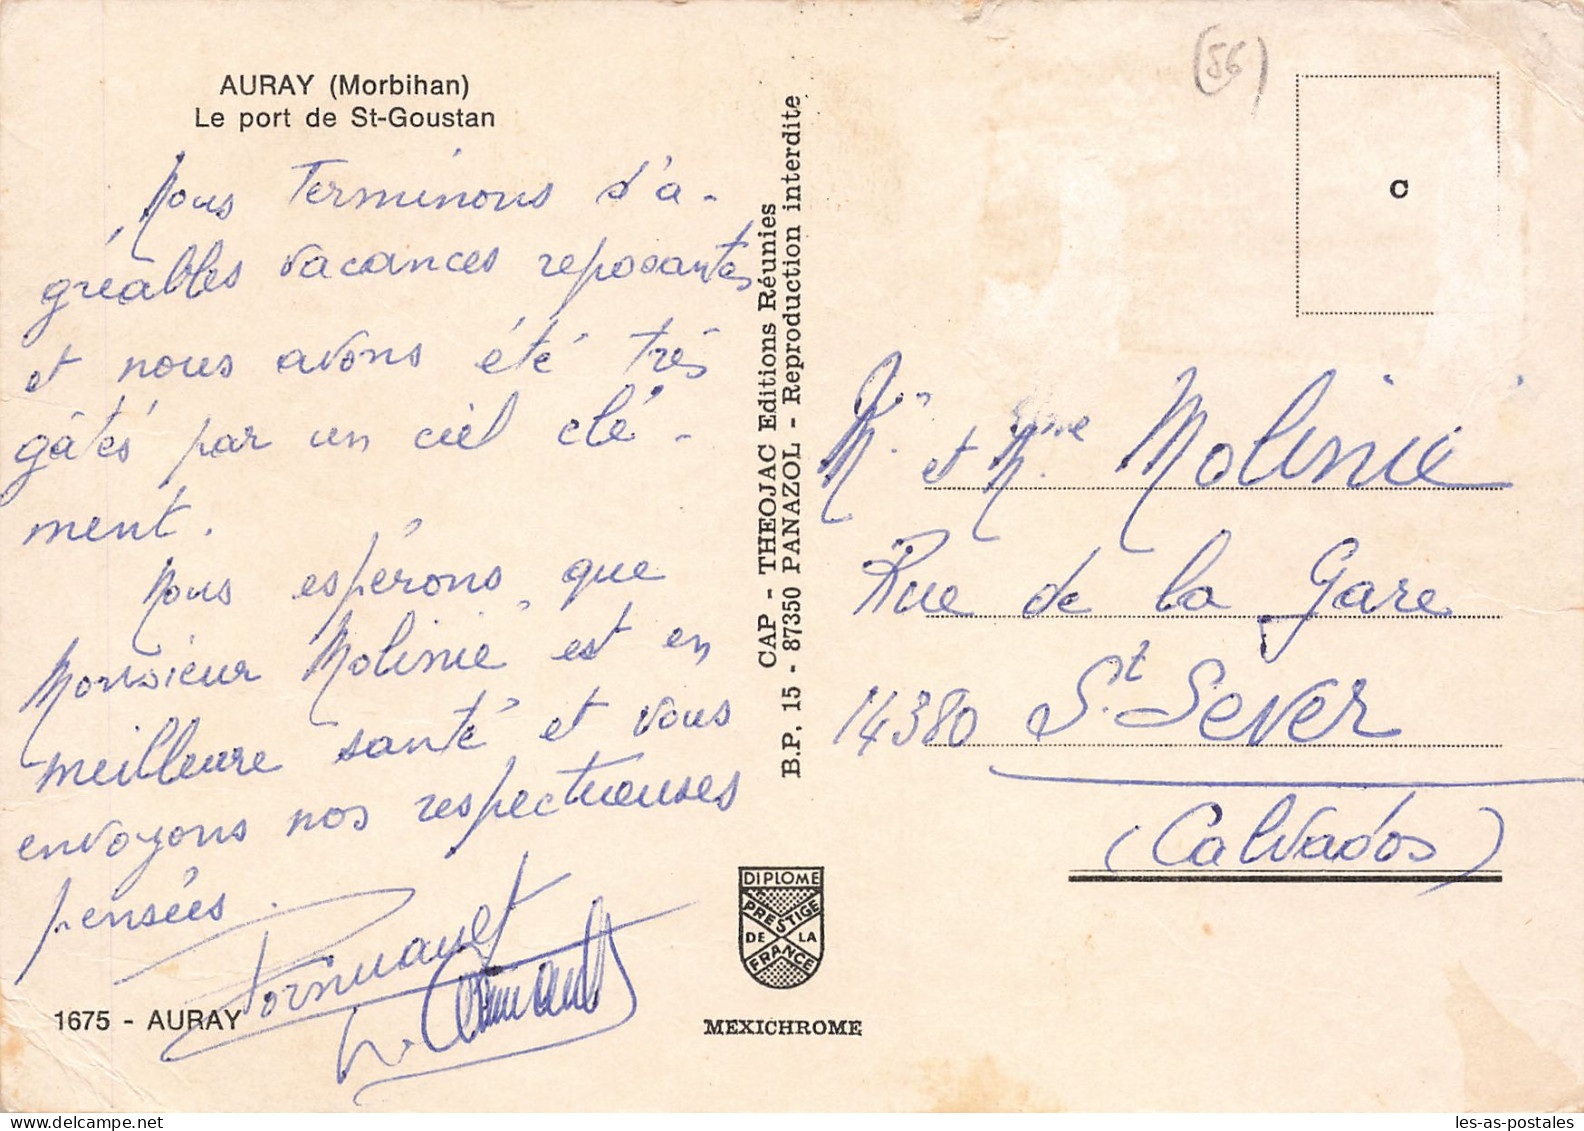 AURAY (Morbihan)
Le port de St-Goustan
Nous terminons d'a-
gréables vacances reposantes
et nous avons été très
gâtés par un ciel clé-
ment.
Nous espérons que
Monsieur Molinié est en
meilleure santé et vous
envoyons nos respectueuses
pensées.
1675 - AURAY
CAP - THEOJAC Editions Réunies
B.P. 15 - 87350 PANAZOL - Reproduction interdite
DIPLOME
PRESTIGE
DE LA
FRANCE
MEXICHROME
(56)
C
Mr et Mme Molinié
Rue de la Gare
14380 St Sever
(Calvados)
les-as-postales.com